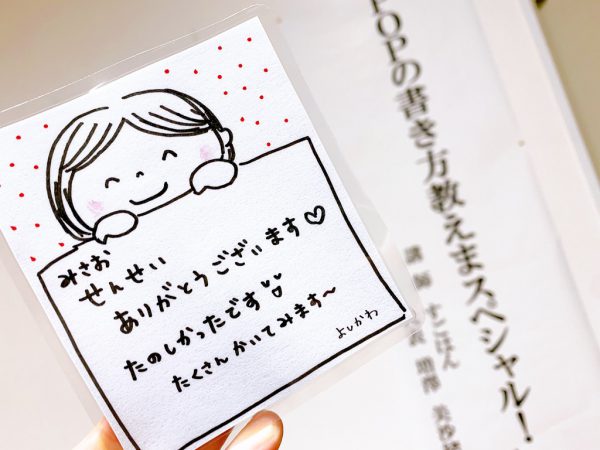 みさお
せんせい
ありがとうございます♡
たのしかったです
たくさんかいてみます〜
よしかわ
POPの書き方教えまスペシャル!
講師 すごはん